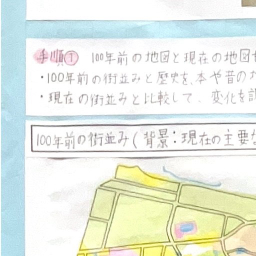 手順① 100年前の地図と現在の地図
・100年前の街並みと歴史を、本や昔の
・現在の街並みと比較して、変化を
100年前の街並み(背景:現在の主要な